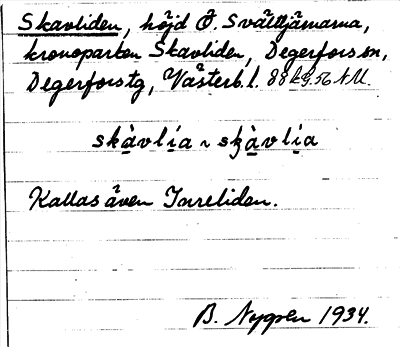 Skavliden, höjd Ö Svälttjärnarna,
kronoparken Skavliden, Degerfors sn,
Degerfors tg, Västerb. l.
skàvlía ~ skàvlía
Kallas även Tarreliden.
B. Nygren 1934.